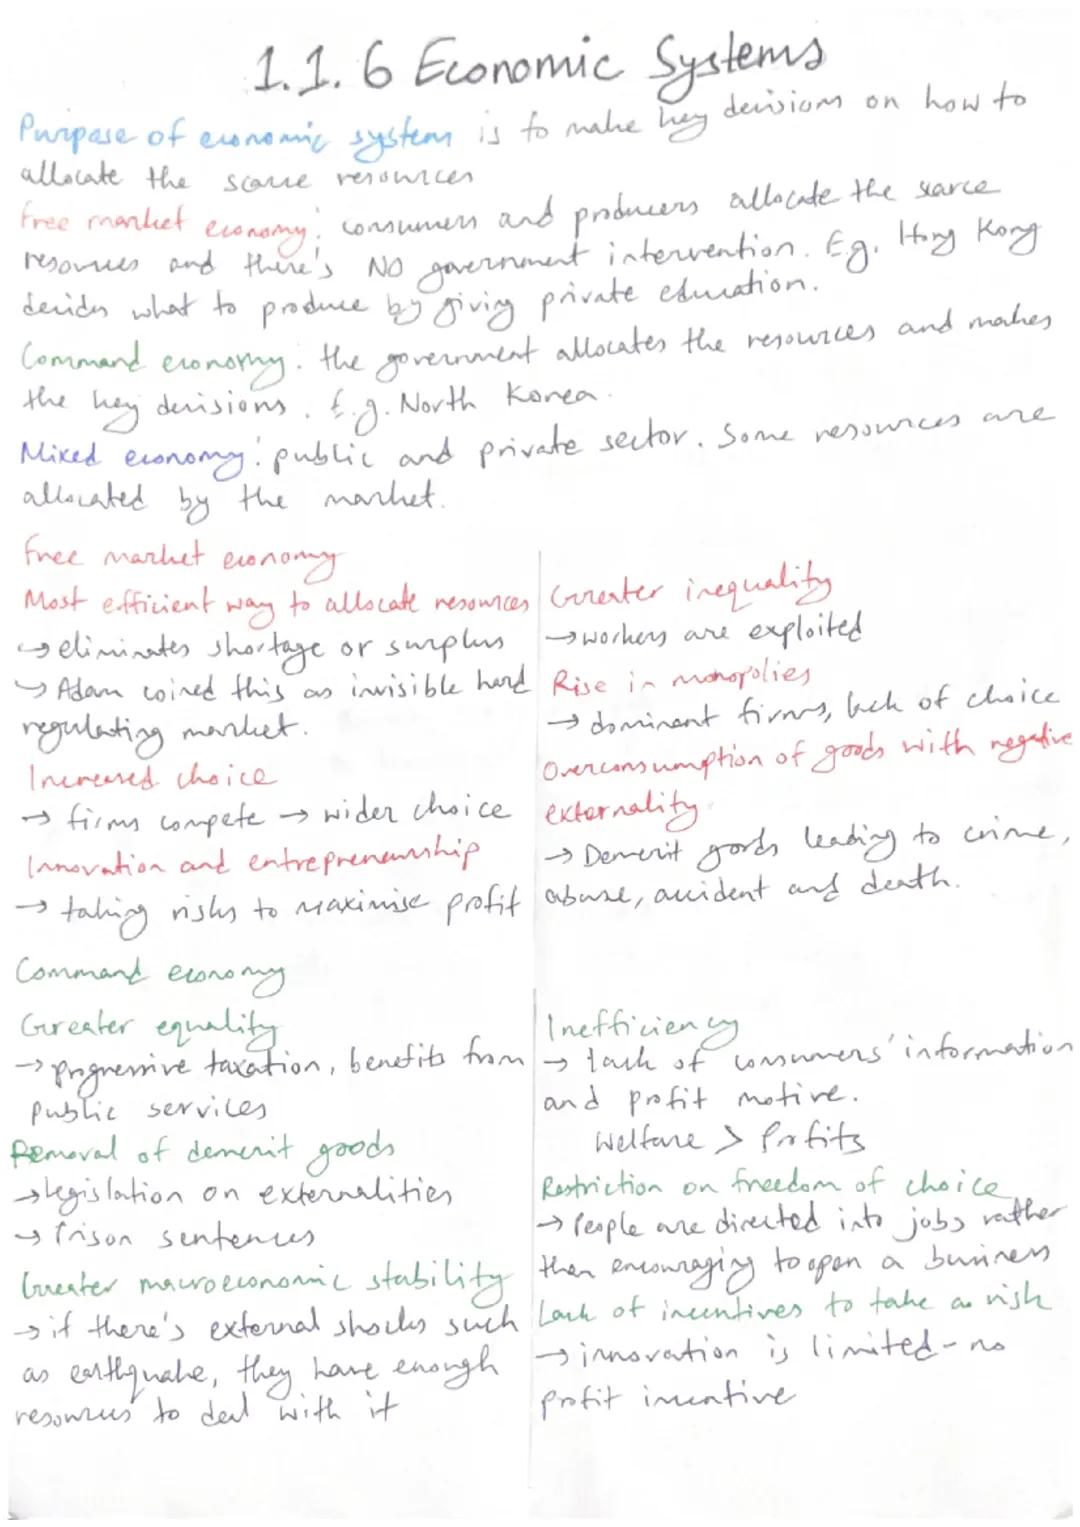 1.1.6 Economic Systems
Purpose of economic system is to make key decisions on how to
allocate the scarce resources
Free market economy: consumers and producers allocate the scarce
resources and there's NO government intervention. E.g. Hong Kong
decides what to produce by giving private education.
Command economy: the government allocates the resources and makes
the key decisions. E.g. North Korea.
Mixed economy: public and private sector. Some resources are
allocated by the market.
Free market economy
Most efficient way to allocate resources
→ eliminates shortage or surplus
→ Adam coined this as invisible hand
regulating market.
Increased choice
→ firms compete → wider choice
Innovation and entrepreneurship
→ taking risks to maximise profit
Greater inequality
→ workers are exploited
Rise in monopolies
→ dominant firms, lack of choice
Overconsumption of goods with negative
externality.
→ Demerit goods leading to crime,
abuse, accident and death.
Command economy
Greater equality
→ progressive taxation, benefits from
public services
Removal of demerit goods
→ legislation on externalities
→ Prison sentences
Greater macroeconomic stability
→ if there's external shocks such
as earthquake, they have enough
resources to deal with it
Inefficiency
→ lack of consumers' information
and profit motive.
Welfare > Profits
Restriction on freedom of choice
→ People are directed into jobs rather
than encouraging to open a business
Lack of incentives to take a risk
→ innovation is limited - no
profit incentive